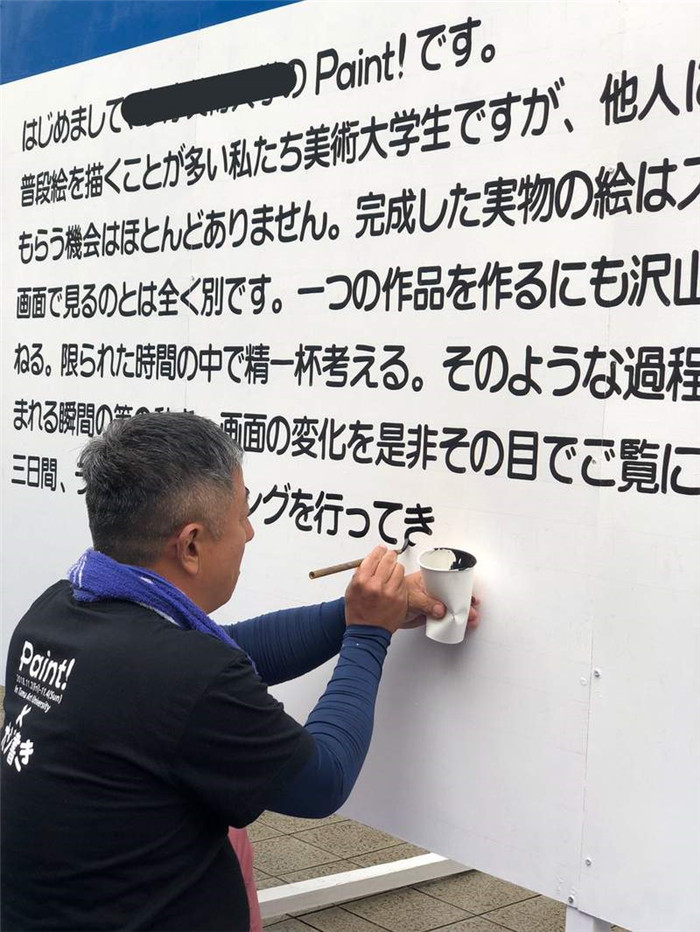 はじめまして、 の Paint! です。
普段絵を描くことが多い私たち美術大学生ですが、他人に
もらう機会はほとんどありません。完成した実物の絵はス
画面で見るのとは全く別です。一つの作品を作るにも沢山
ねる。限られた時間の中で精一杯考える。そのような過程
まれる瞬間の 画面の変化を是非その目でご覧に
三日間、 ングを行ってき
Paint!
2018.11.2(Fri)-11.4(Sun)
In Tama Art University
×
書き